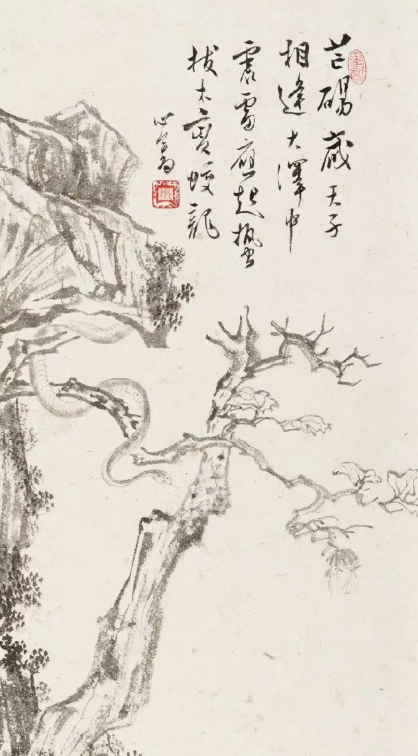 芒碭藏天子
相逢大澤中
震雷應起蟄
拔木變蛟龍
心畬